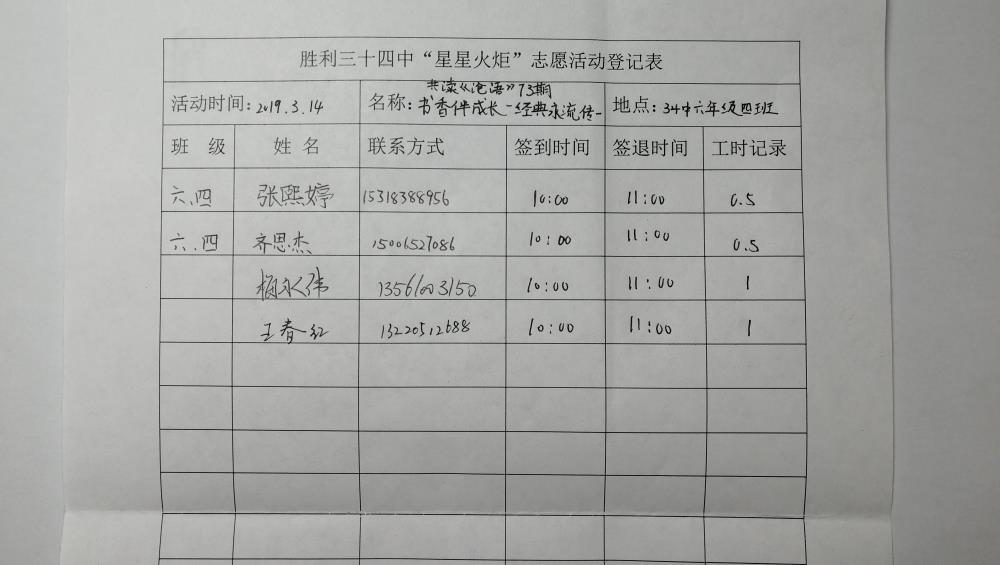 胜利三十四中“星星火炬”志愿活动登记表
活动时间：2019.3.14 名称：共读《论语》73期 书香伴成长-经典永流传- 地点：34中六年级四班
班 级 姓 名 联系方式 签到时间 签退时间 工时记录
六.四 张熙婷 15318388956 10:00 11:00 0.5
六.四 齐思杰 15006527086 10:00 11:00 0.5
杨永伟 13561003150 10:00 11:00 1
王春红 13220512688 10:00 11:00 1